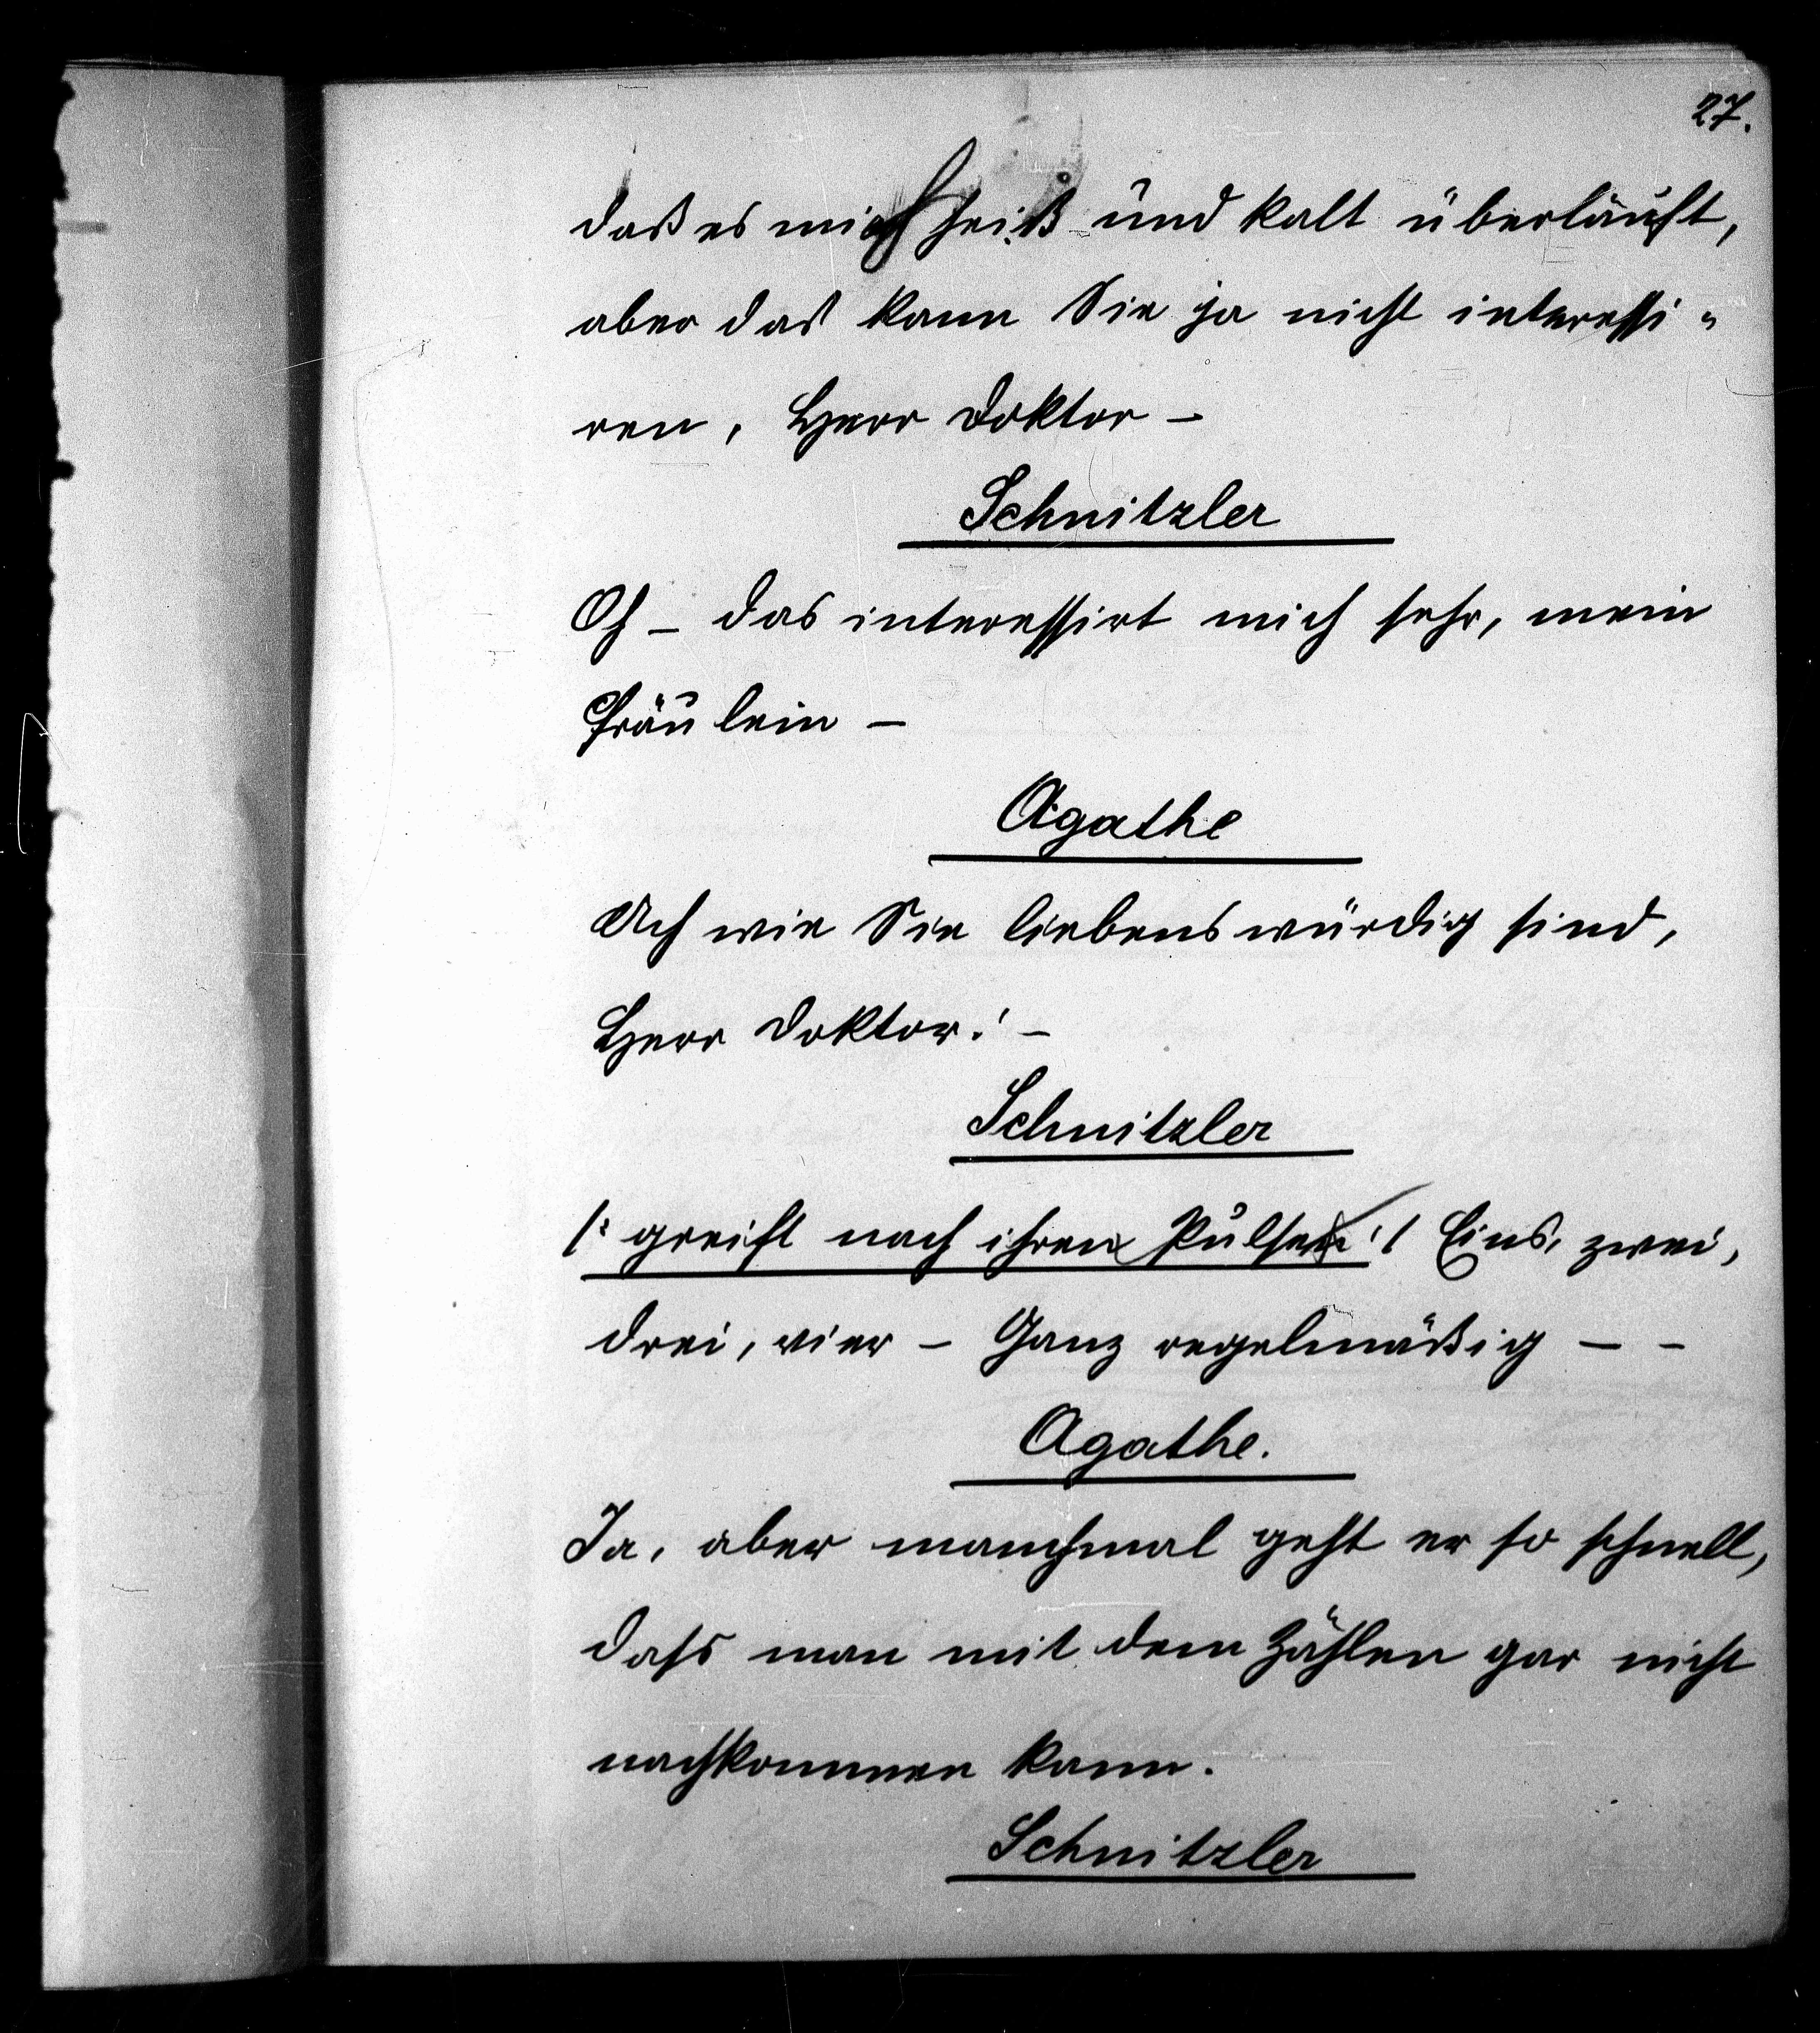 27.
daß es mich heiß und kalt überläuft,
aber das kann Sie ja nicht interessi-
ren, Herr Doktor –
Schnitzler
Oh – das interessirt mich sehr, mein
Fräulein –
Agathe
Ach wie Sie liebenswürdig sind,
Herr Doktor! –
Schnitzler
/: greift nach ihren Pulsen :/ Eins, zwei,
drei, vier – Ganz regelmäßig – –
Agathe.
Ja, aber manchmal geht er so schnell,
dass man mit dem Zählen gar nicht
nachkommen kann.
Schnitzler